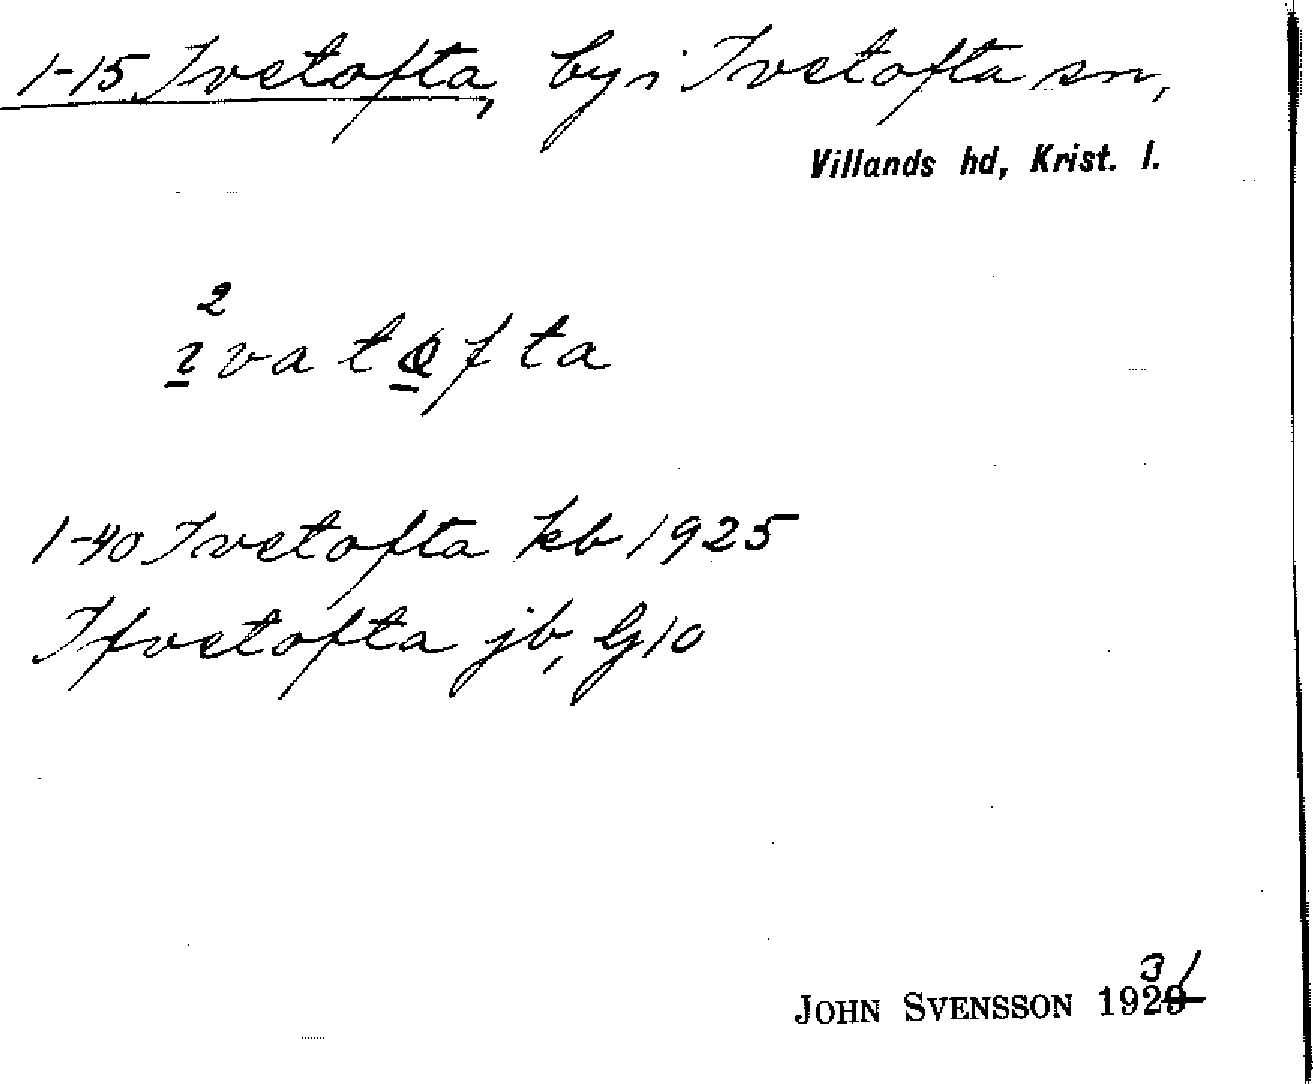 1-15 Ivetofta, by i Ivetofta sn,
Villands hd, Krist. l.
2
ivatofta
1-40 Ivetofta kb 1925
Ifvetofta jb, G10
31
JOHN SVENSSON 1929